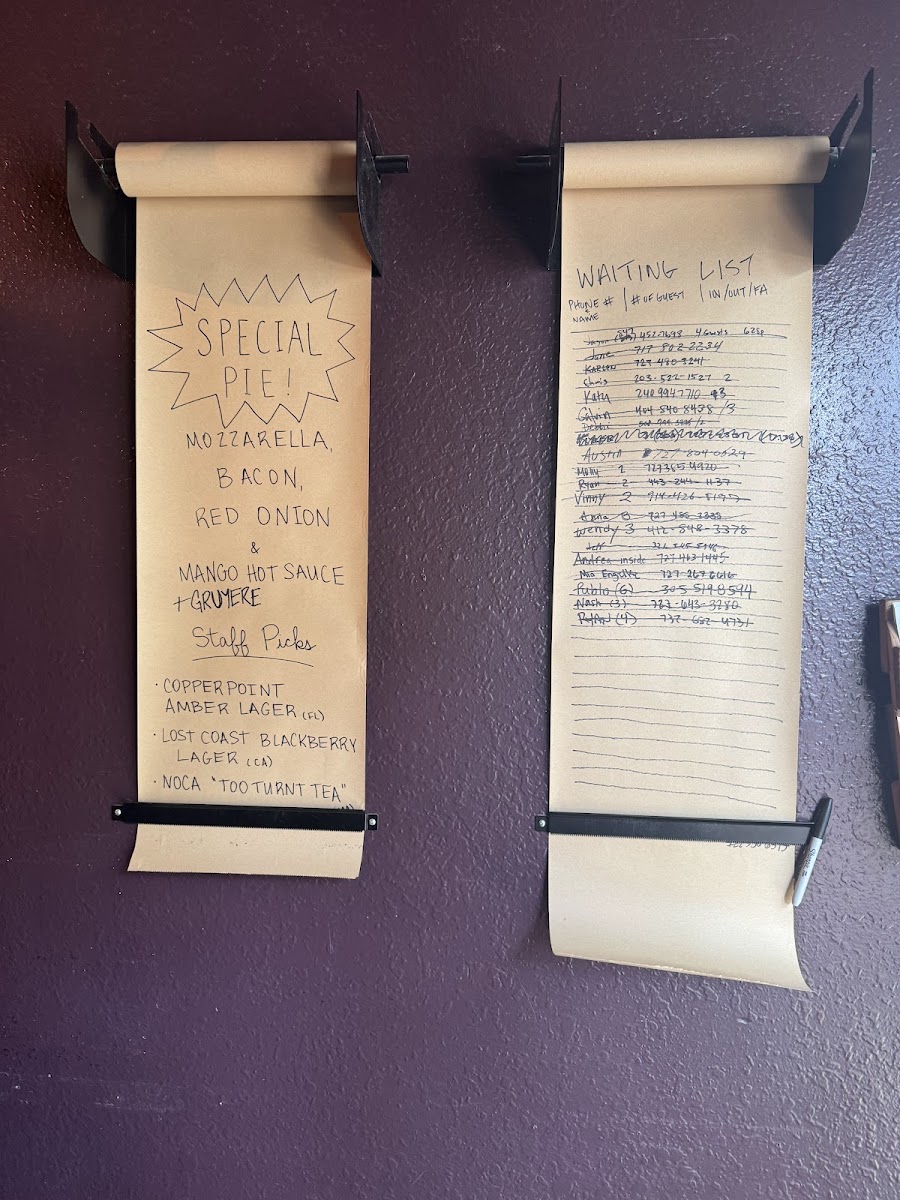 SPECIAL
PIE!
MOZZARELLA,
BACON,
RED ONION
&
MANGO HOT SAUCE
+ GRUYERE
Staff Picks
· COPPERPOINT
AMBER LAGER (FL)
· LOST COAST BLACKBERRY
LAGER (CA)
· NOCA "TOO TURNT TEA"
WAITING LIST
PHONE # | # OF GUEST | IN/OUT/FA
NAME
Jason 452-7698 4 Guests
717 802-2234
Karlon 727-480-9241
Chris 203-522-1527 2
Katy 240 994 7710 3
Calvin 404 840 8438 /3
Debbie
Austin 727-804-0629
Molly 2 727 365 4920
Ryan 2 443-244-1137
Vinny 2 914-426-5197
727-488-2333
Wendy 3 412-848-3378
Jeff
Andrea inside 727-463-1445
Mia 727-267-6616
Pablo (6) 305 519 8594
Nash (3) 727-643-3280
RYAN (4) 732-682-4731
Sharpie